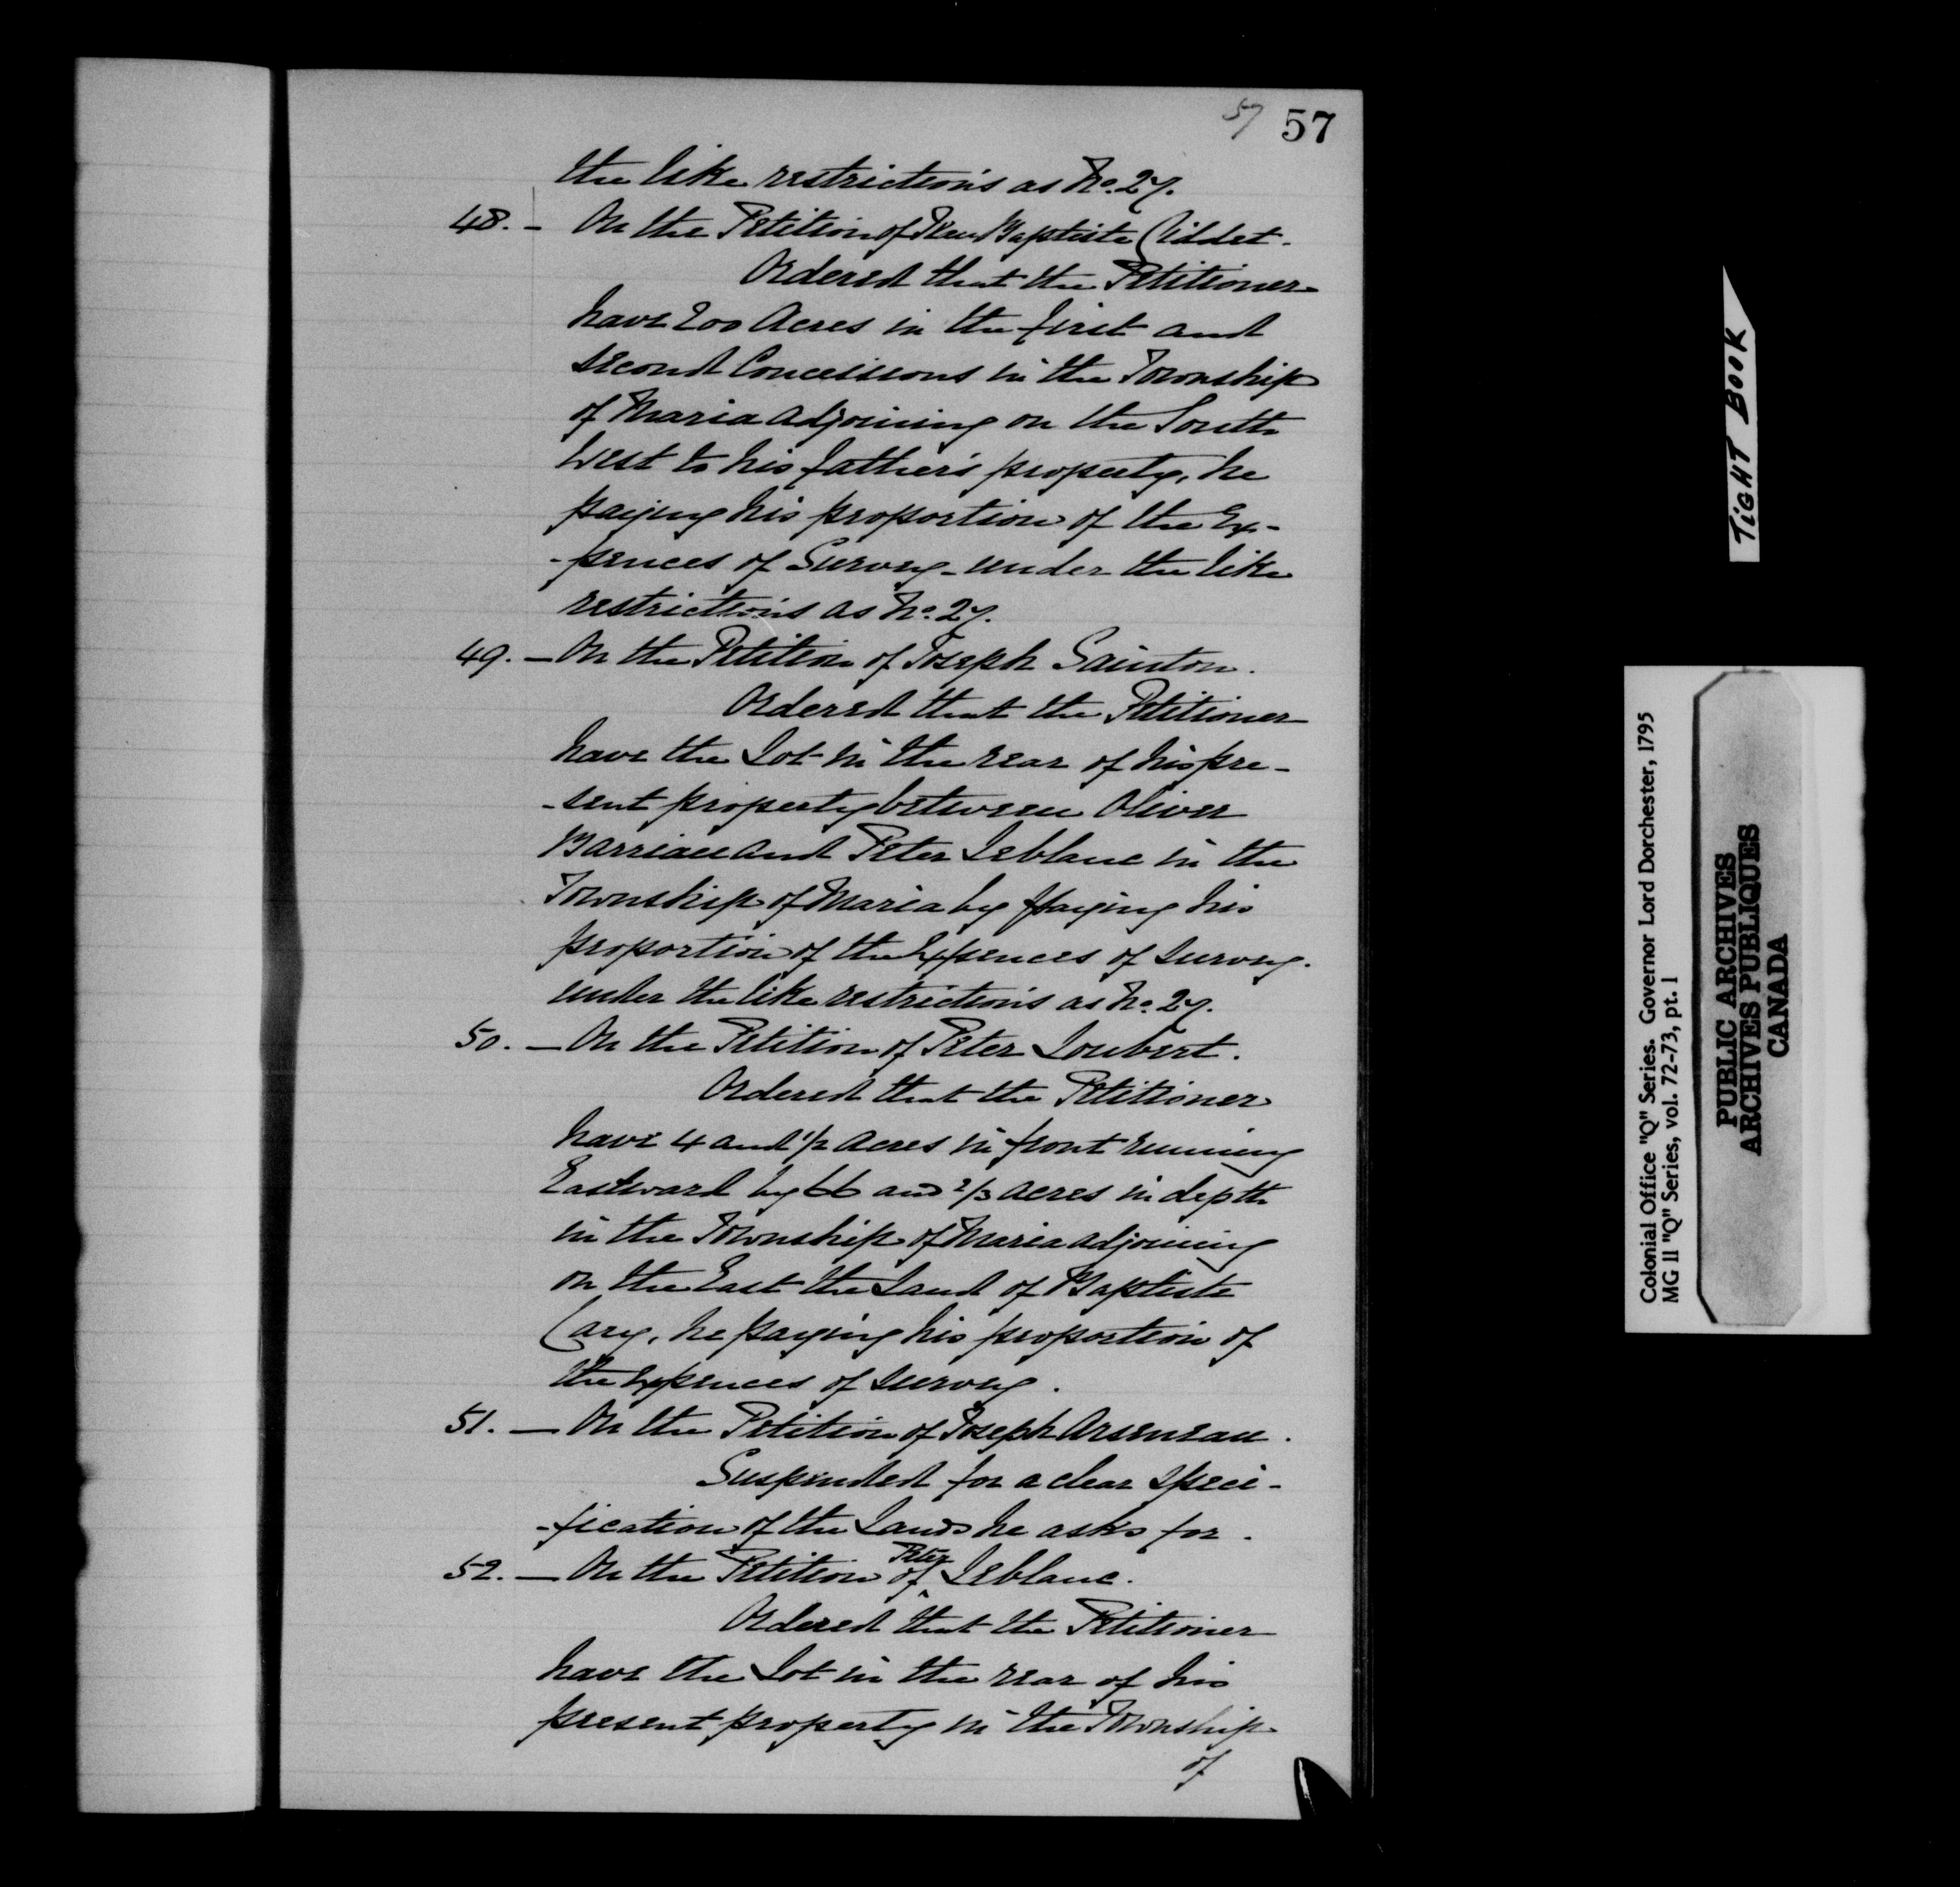 57 57
the like restrictions as No. 27.
48. - On the Petition of Jean Baptiste
Ordered that the Petitioner
have 200 Acres in the first and
second Concessions in the Township
of Maria adjoining on the South
West to his father's property, he
paying his proportion of the Ex-
-pences of Survey - under the like
restrictions as No. 27.
49. - On the Petition of Joseph Sainton.
Ordered that the Petitioner
have the Lot in the rear of his pre-
-sent property between Oliver
Barriau and Peter Leblanc in the
Township of Maria by paying his
proportion of the Expences of Survey.
under the like restrictions as No. 27.
50. - On the Petition of Peter Loubert.
Ordered that the Petitioner
have 4 and 1/2 acres in front running
Eastward by 66 and 2/3 acres in depth
in the Township of Maria adjoining
on the East the Land of Baptiste
Cary, he paying his proportion of
the Expences of Survey.
51. - On the Petition of Joseph Arseneau.
Suspended for a clear speci-
-fication of the Lands he asks for.
52. - On the Petition of Peter Leblanc.
Ordered that the Petitioner
have the Lot in the rear of his
present property in the Township
of
TIGHT BOOK
Colonial Office "Q" Series. Governor Lord Dorchester, 1795
MG 11 "Q" Series, vol. 72-73, pt. 1
PUBLIC ARCHIVES
ARCHIVES PUBLIQUES
CANADA